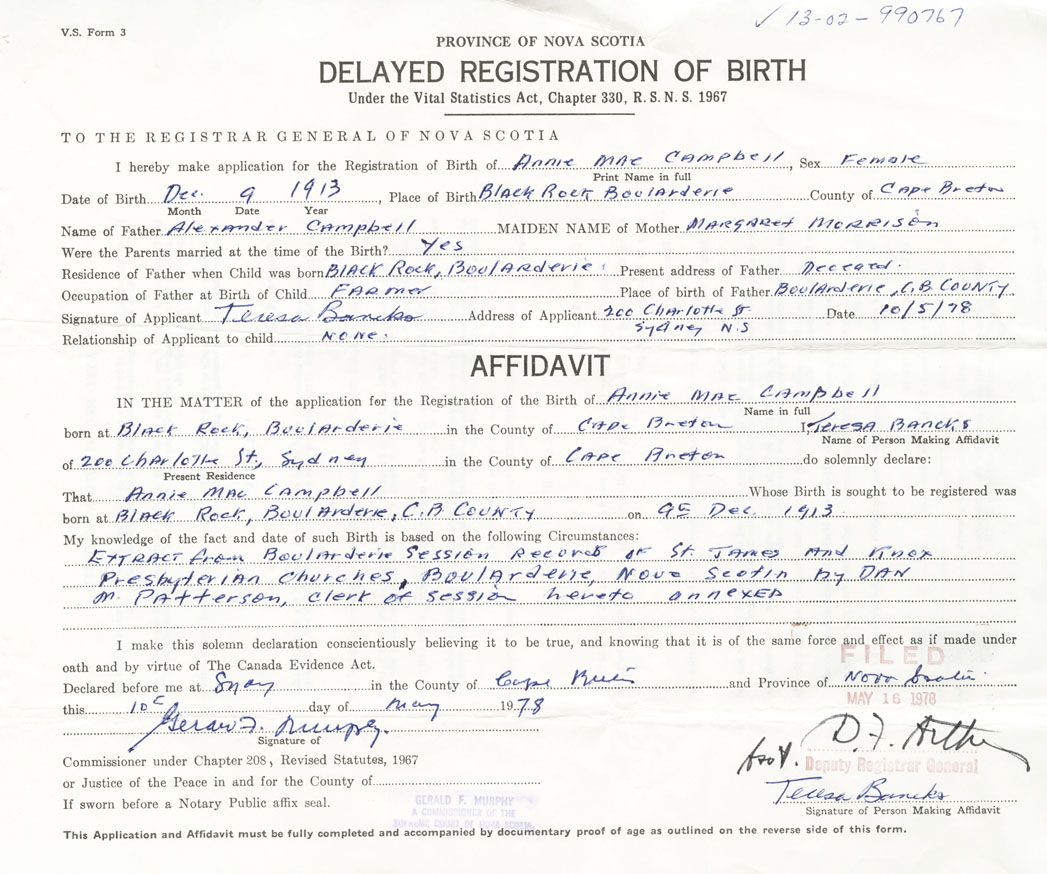 ✓ 13-02-990767
V.S. Form 3
PROVINCE OF NOVA SCOTIA
DELAYED REGISTRATION OF BIRTH
Under the Vital Statistics Act, Chapter 330, R. S. N. S. 1967
TO THE REGISTRAR GENERAL OF NOVA SCOTIA
I hereby make application for the Registration of Birth of Annie Mac Campbell, Sex Female
Print Name in full
Date of Birth Dec. 9 1913, Place of Birth Black Rock Boularderie County of Cape Breton
Month Date Year
Name of Father Alexander Campbell MAIDEN NAME of Mother Margaret Morrison
Were the Parents married at the time of the Birth? Yes
Residence of Father when Child was born Black Rock, Boularderie Present address of Father Deceased.
Occupation of Father at Birth of Child Farmer Place of birth of Father Boularderie, C.B. County
Signature of Applicant Teresa Bancks Address of Applicant 200 Charlotte St Date 10/5/78
Sydney N.S
Relationship of Applicant to child None.
AFFIDAVIT
IN THE MATTER of the application for the Registration of the Birth of Annie Mac Campbell
Name in full
born at Black Rock, Boularderie in the County of Cape Breton I, Teresa Bancks
Name of Person Making Affidavit
of 200 Charlotte St., Sydney in the County of Cape Breton do solemnly declare:
Present Residence
That Annie Mac Campbell Whose Birth is sought to be registered was
born at Black Rock, Boularderie, C.B County on 9th Dec. 1913
My knowledge of the fact and date of such Birth is based on the following Circumstances:
Extract from Boularderie Session Records of St. James and Knox
Presbyterian Churches, Boularderie, Nova Scotia by Dan
M. Patterson, clerk of session hereto annexed
I make this solemn declaration conscientiously believing it to be true, and knowing that it is of the same force and effect as if made under
oath and by virtue of The Canada Evidence Act.
FILED
Declared before me at Sydney in the County of Cape Breton and Province of Nova Scotia.
MAY 16 1978
this 10th day of May 1978
Gerald F. Murphy.
Signature of
D. F. Arthur
Commissioner under Chapter 208, Revised Statutes, 1967
Deputy Registrar General
or Justice of the Peace in and for the County of
Teresa Bancks
If sworn before a Notary Public affix seal.
Signature of Person Making Affidavit
GERALD F. MURPHY
A COMMISSIONER OF THE
SUPREME COURT OF NOVA SCOTIA
This Application and Affidavit must be fully completed and accompanied by documentary proof of age as outlined on the reverse side of this form.